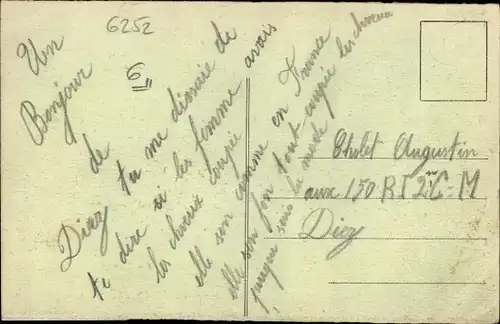 6252
6
Un
Bonjour
de
Diez
tu me disais de
te dire si les femme avais
les cheveux coupée
elle son comme en France
elle son fon tout coupée les cheveux
jusque sous la mode
Cholet Augustin
aux 150 RI 2me C-M
Diez